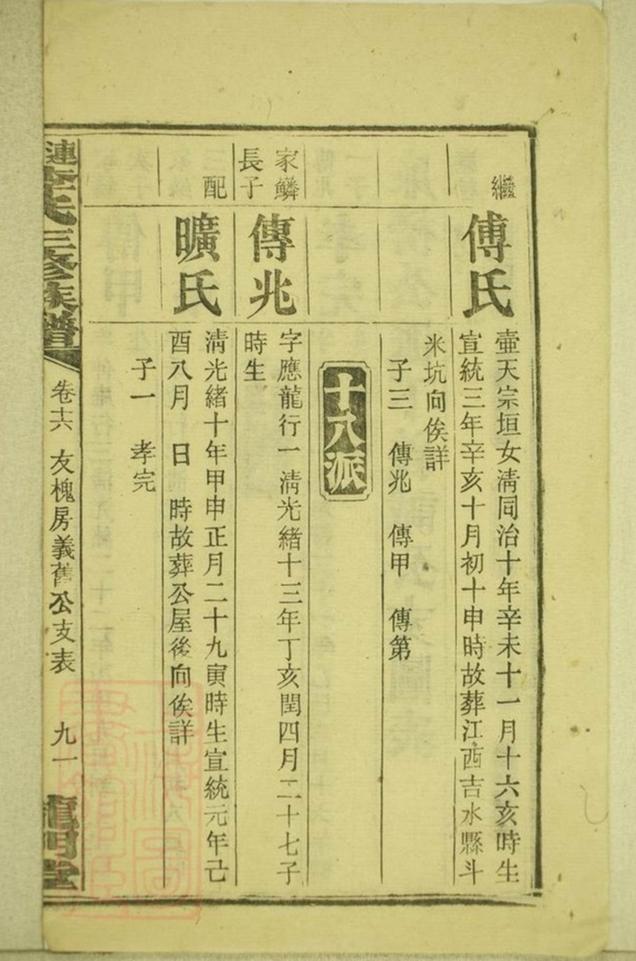 繼
傅氏
壷天宗垣女淸同治十年辛未十一月十六亥時生
宣統三年辛亥十月初十申時故葬江西吉水縣斗
米坑向俟詳
子三 傳兆 傳甲 傳第
十八派
家鱗
長子
傳兆
字應龍行一淸光緒十三年丁亥閏四月二十七子
時生
配
曠氏
淸光緒十年甲申正月二十九寅時生宣統元年己
酉八月 日 時故葬公屋後向俟詳
子一 孝完
漣李氏三修族譜
卷十六 友槐房義舊公支表 九一
龍門堂